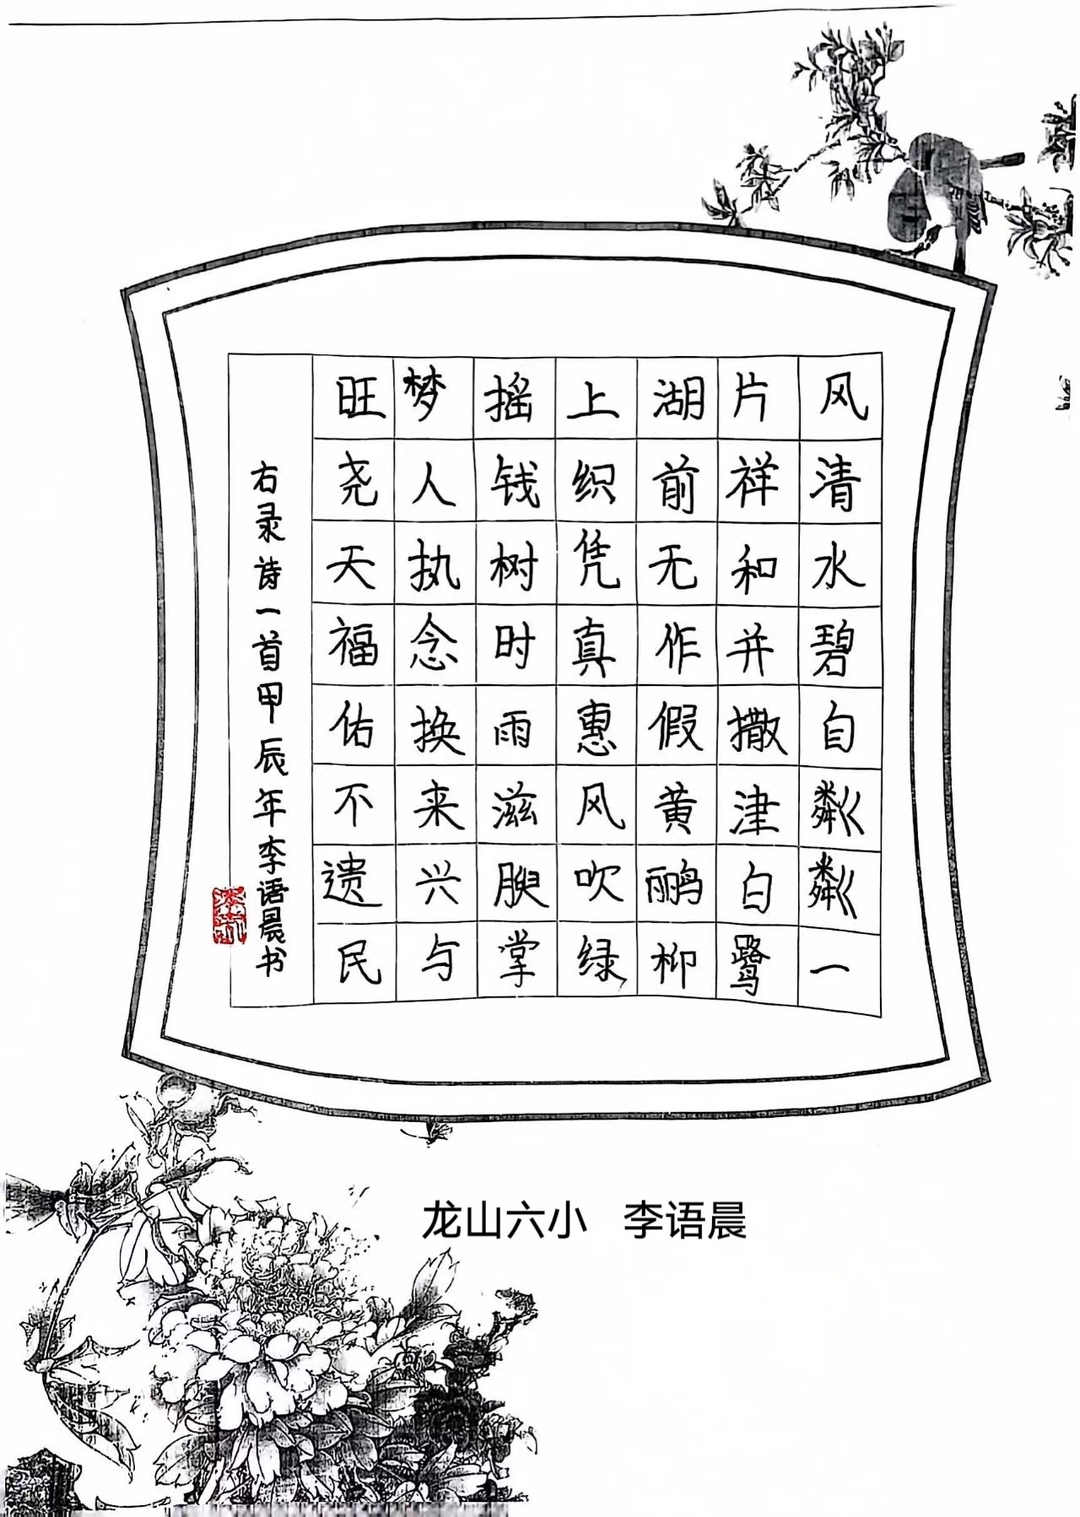 风清水碧自粼粼一
片祥和并撒津白鹭
湖前无作假黄鹂柳
上织凭真惠风吹绿
摇钱树时雨滋腴掌
梦人执念换来兴与
旺尧天福佑不遗民
右录诗一首甲辰年李语晨书
龙山六小 李语晨